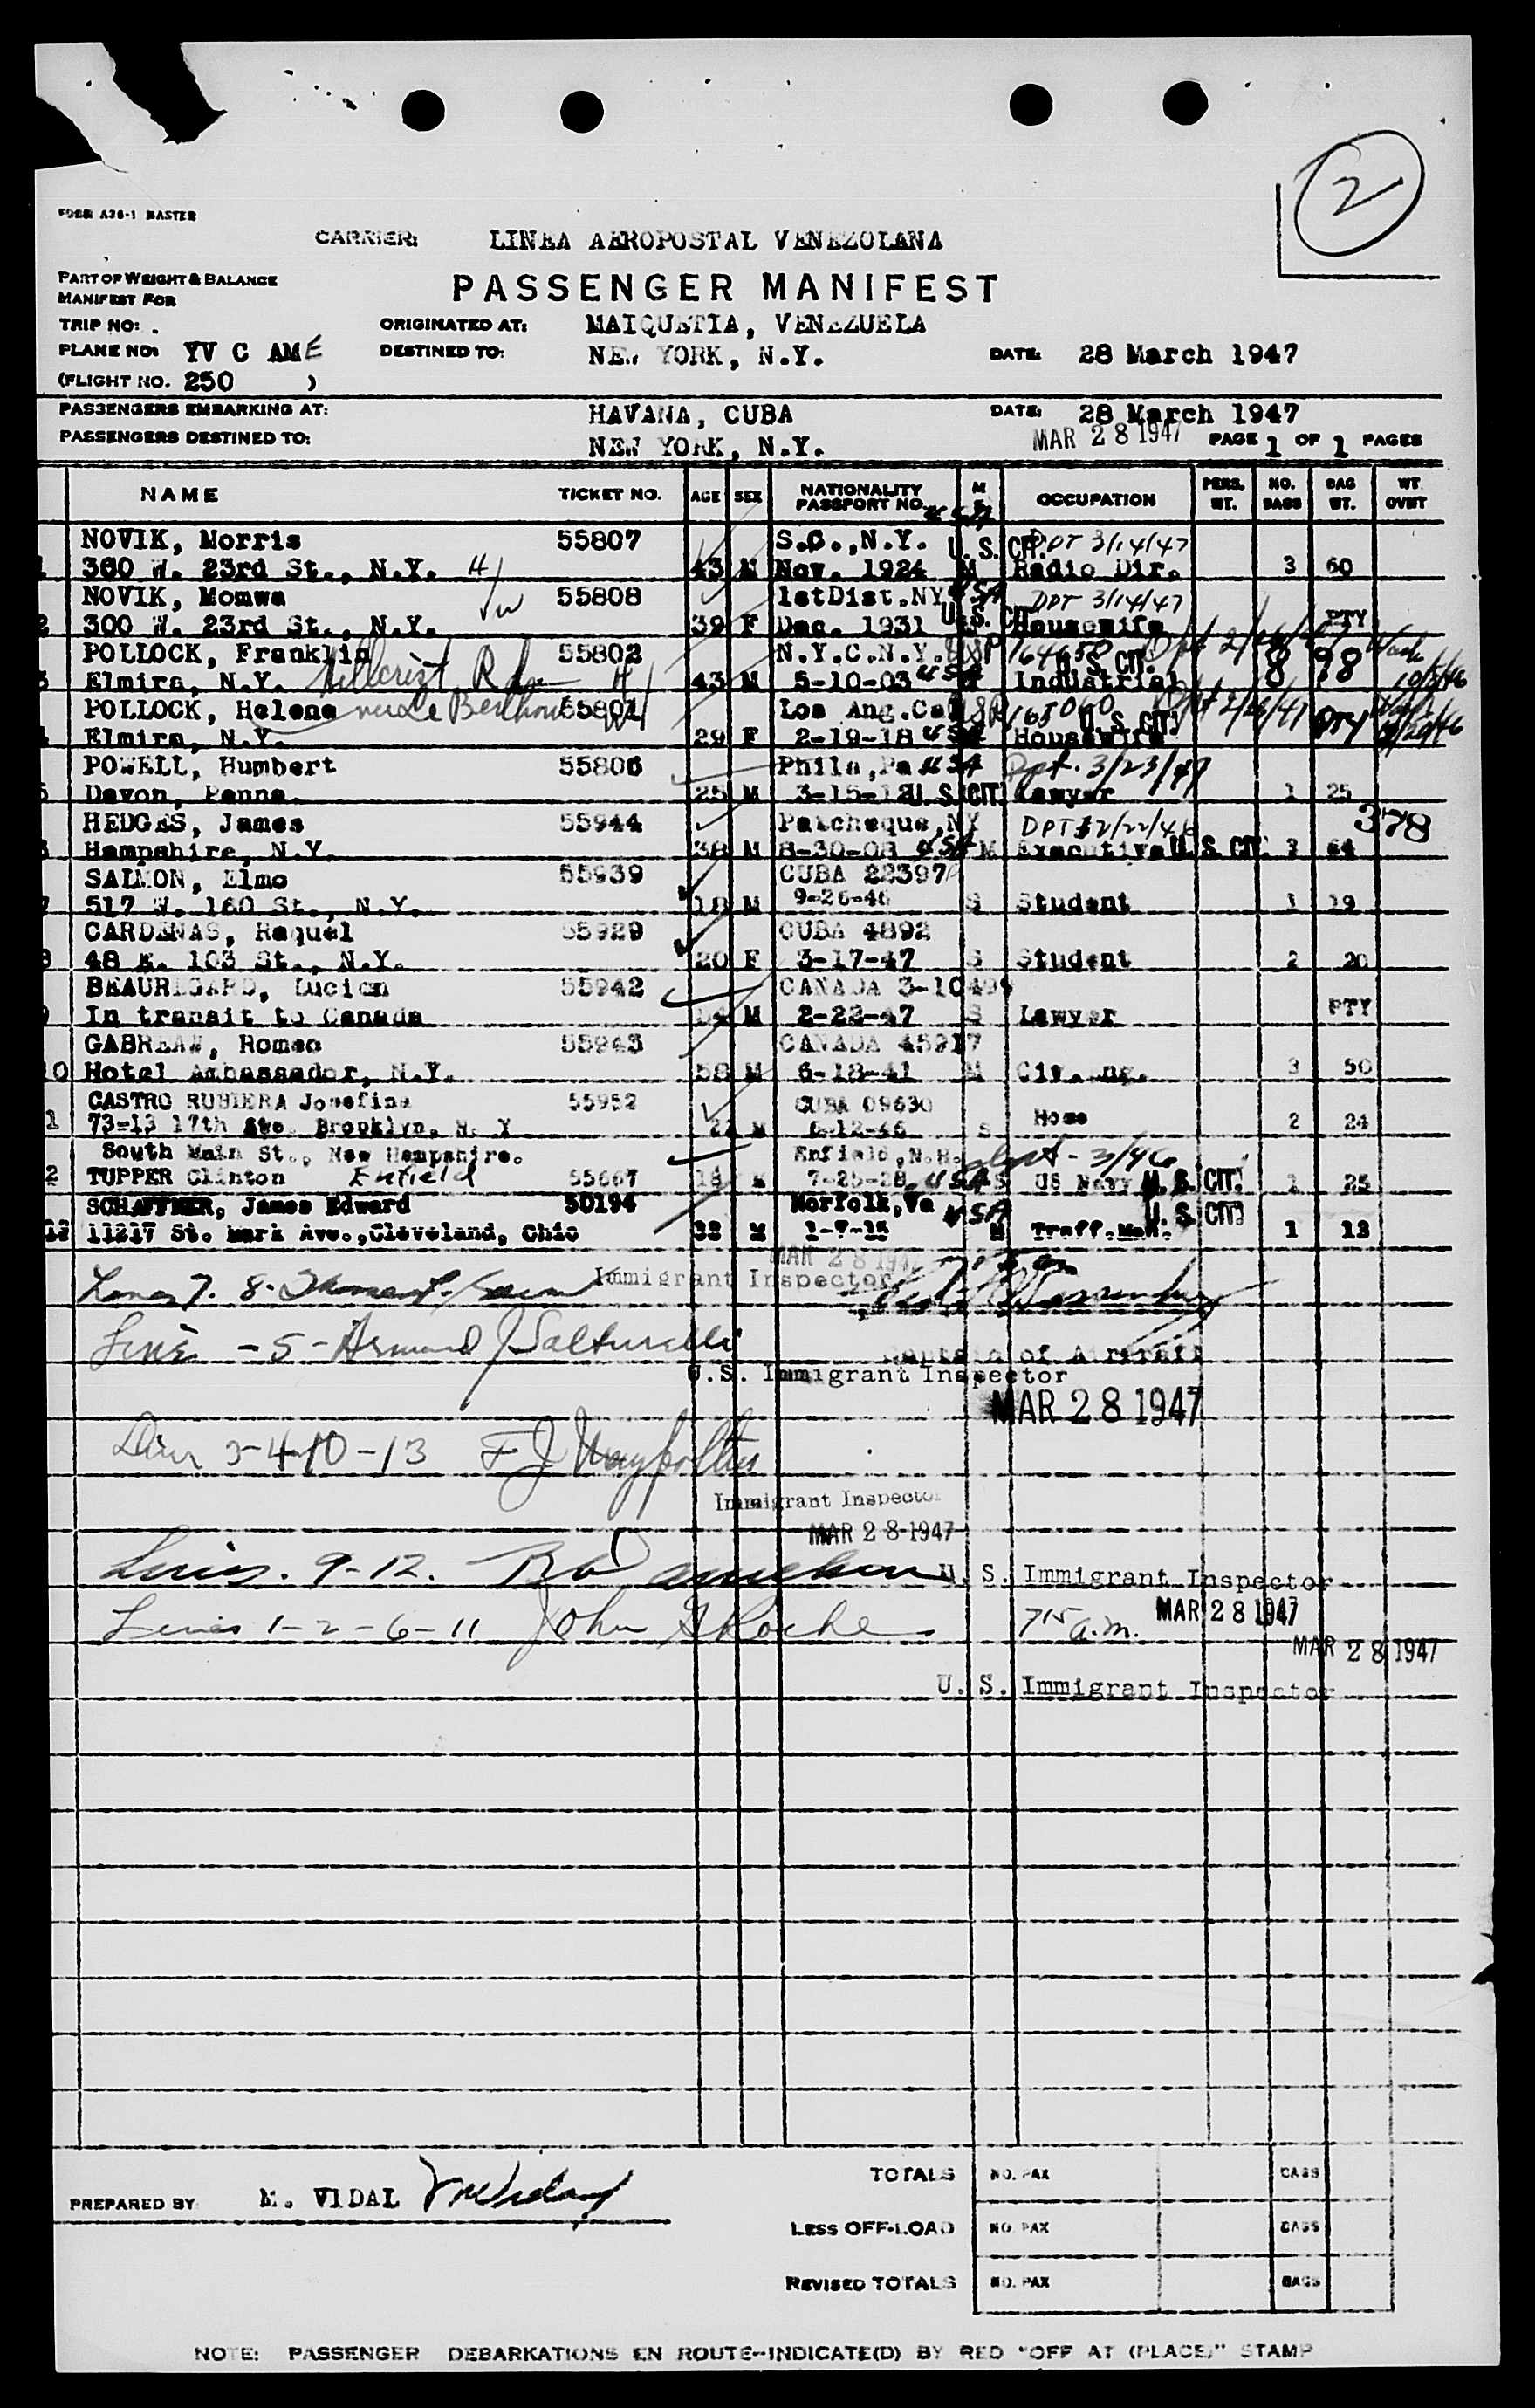 2
FORM A36-1 MASTER
CARRIER: LINEA AEROPOSTAL VENEZOLANA
PART OF WEIGHT & BALANCE
MANIFEST FOR
PASSENGER MANIFEST
TRIP NO: . ORIGINATED AT: MAIQUETIA, VENEZUELA
PLANE NO: YV C AME DESTINED TO: NEW YORK, N.Y. DATE: 28 March 1947
(FLIGHT NO. 250 )
PASSENGERS EMBARKING AT: HAVANA, CUBA DATE: 28 March 1947
PASSENGERS DESTINED TO: NEW YORK, N.Y. MAR 28 1947 PAGE 1 OF 1 PAGES
NAME TICKET NO. AGE SEX NATIONALITY PASSPORT NO. M S OCCUPATION PERS. WT. NO. BAGS BAG WT. WT. OVWT
NOVIK, Morris 55807 S.C.,N.Y. USA U.S. CIT. DPT 3/14/47
1 360 W. 23rd St., N.Y. H 43 M Nov. 1924 M Radio Dir. 3 60
NOVIK, Momwa W 55808 1stDist.NY USA DPT 3/14/47
2 300 W. 23rd St., N.Y. 39 F Dec. 1931 U.S. CIT Housewife PTY
POLLOCK, Franklin 55802 N.Y.C.N.Y. USP 164650 U.S. CIT. Wash
3 Elmira, N.Y. Hillcrest Rd. H 43 M 5-10-03 USA M Industrial 8 98 10/5/46
POLLOCK, Helene 55801 Los Ang.Ca USP U.S. CIT.
4 Elmira, N.Y. W 29 F 2-19-18 USA Housewife PTY
POWELL, Humbert 55806 Phila,Pa USA Dpt. 3/23/47
5 Devon, Penna. 25 M U.S. CIT. Lawyer 1 25
HEDGES, James 55944 Patcheque,NY 378
6 Hampshire, N.Y. 38 M 8-30-08 USA M Executive U.S. CIT. 3 64
SALMON, Elmo 55939 CUBA 22397
7 517 W. 160 St., N.Y. 18 M 9-26-46 S Student 1 19
CARDENAS, Raquel 55929 CUBA 4892
8 48 E. 103 St., N.Y. 20 F 3-17-47 S Student 2 20
BEAUREGARD, Lucien 55942 CANADA 3-10499
9 In transit to Canada M 2-22-47 S Lawyer PTY
GABREAW, Romeo 55943 CANADA 45917
10 Hotel Ambassador, N.Y. 58 M 6-18-41 M Civ. Eng. 3 50
CASTRO RUBIERA Josefina 55952 CUBA 09630
11 73-13 17th Ave. Brooklyn, N. Y 6-12-46 S Home 2 24
South Main St., New Hampshire. Enfield,N.H. dept - 3/46
12 TUPPER Clinton Enfield 55667 18 M 7-25-28 USA S US Navy U.S. CIT. 1 25
SCHAFFNER, James Edward 50194 Norfolk,Va USA U.S. CIT.
13 11217 St. Mark Ave.,Cleveland, Ohio 32 M 1-7-15 M Traff.Man. 1 13
MAR 28 1947
Lines 7. 8- Immigrant Inspector
Line - 5 - Armand J Salturelli Captain of Aircraft
U.S. Immigrant Inspector
MAR 28 1947
Lines 3-4-10-13 F J
Immigrant Inspector
MAR 28 1947
Lines. 9-12. U. S. Immigrant Inspector
Lines 1-2-6-11 John A Roche 7 15 a.m. MAR 28 1947
MAR 28 1947
U. S. Immigrant Inspector
TOTALS NO. PAX BAGS
PREPARED BY M. VIDAL M Vidal
LESS OFF-LOAD NO. PAX BAGS
REVISED TOTALS NO. PAX BAGS
NOTE: PASSENGER DEBARKATIONS EN ROUTE-INDICATE(D) BY RED "OFF AT (PLACE)" STAMP